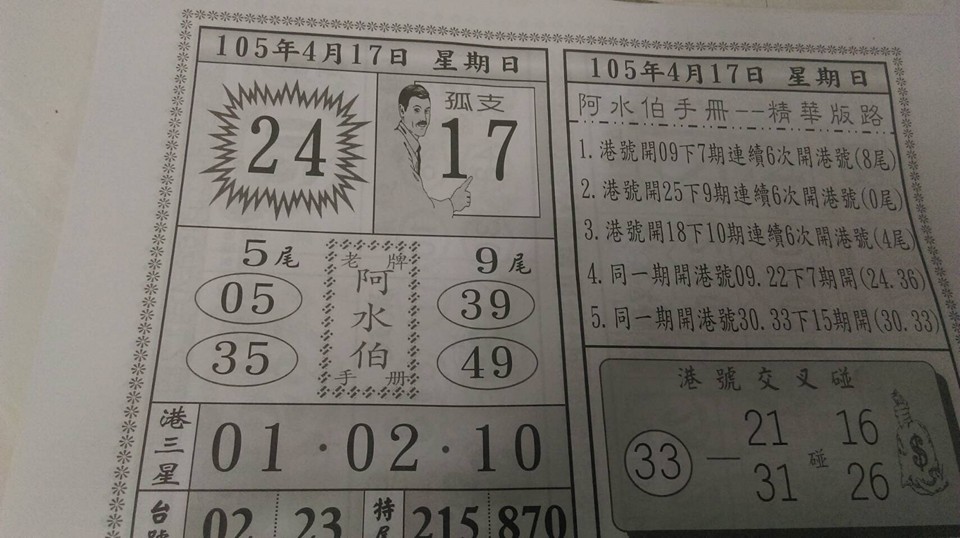 105年4月17日 星期日
24
孤支
17
5尾
05
35
老牌
阿水伯
手册
9尾
39
49
港三星
01·02·10
台號
02 23
特尾
215 870
105年4月17日 星期日
阿水伯手冊--精華版路
1.港號開09下7期連續6次開港號(8尾)
2.港號開25下9期連續6次開港號(0尾)
3.港號開18下10期連續6次開港號(4尾)
4.同一期開港號09.22下7期開(24.36)
5.同一期開港號30.33下15期開(30.33)
港號交叉碰
33 — 21 31 碰 16 26
$